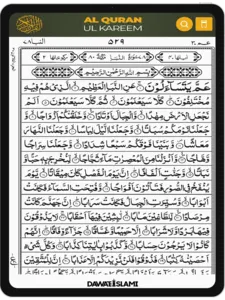 AL QURAN
UL KAREEM
عم ٣٠
٥٢٩
النبا ٧٨
بِسْمِ اللّٰهِ الرَّحْمٰنِ الرَّحِيْمِ
عَمَّ يَتَسَآءَلُوْنَ عَنِ النَّبَاِ الْعَظِيْمِ الَّذِيْ هُمْ فِيْهِ
مُخْتَلِفُوْنَ كَلَّا سَيَعْلَمُوْنَ ثُمَّ كَلَّا سَيَعْلَمُوْنَ اَلَمْ
نَجْعَلِ الْاَرْضَ مِهٰدًا وَّالْجِبَالَ اَوْتَادًا وَّخَلَقْنٰكُمْ اَزْوَاجًا وَّ
جَعَلْنَا نَوْمَكُمْ سُبَاتًا وَّجَعَلْنَا الَّيْلَ لِبَاسًا وَّجَعَلْنَا النَّهَارَ
مَعَاشًا وَّبَنَيْنَا فَوْقَكُمْ سَبْعًا شِدَادًا وَّجَعَلْنَا سِرَاجًا
وَّهَّاجًا وَّاَنْزَلْنَا مِنَ الْمُعْصِرٰتِ مَآءً ثَجَّاجًا لِّنُخْرِجَ بِهٖ حَبًّا وَّ
نَبَاتًا وَّجَنّٰتٍ اَلْفَافًا اِنَّ يَوْمَ الْفَصْلِ كَانَ مِيْقَاتًا يَّوْمَ
يُنْفَخُ فِي الصُّوْرِ فَتَاْتُوْنَ اَفْوَاجًا وَّفُتِحَتِ السَّمَآءُ فَكَانَتْ
اَبْوَابًا وَّسُيِّرَتِ الْجِبَالُ فَكَانَتْ سَرَابًا اِنَّ جَهَنَّمَ كَانَتْ
مِرْصَادًا لِّلطَّاغِيْنَ مَاٰبًا لّٰبِثِيْنَ فِيْهَآ اَحْقَابًا لَا يَذُوْقُوْنَ
فِيْهَا بَرْدًا وَّلَا شَرَابًا اِلَّا حَمِيْمًا وَّغَسَّاقًا جَزَآءً وِّفَاقًا اِنَّهُمْ
كَانُوْا لَا يَرْجُوْنَ حِسَابًا وَّكَذَّبُوْا بِاٰيٰتِنَا كِذَّابًا وَكُلَّ شَيْءٍ
اَحْصَيْنٰهُ كِتٰبًا فَذُوْقُوْا فَلَنْ نَّزِيْدَكُمْ اِلَّا عَذَابًا اِنَّ لِلْمُتَّقِيْنَ
DAWATEISLAMI